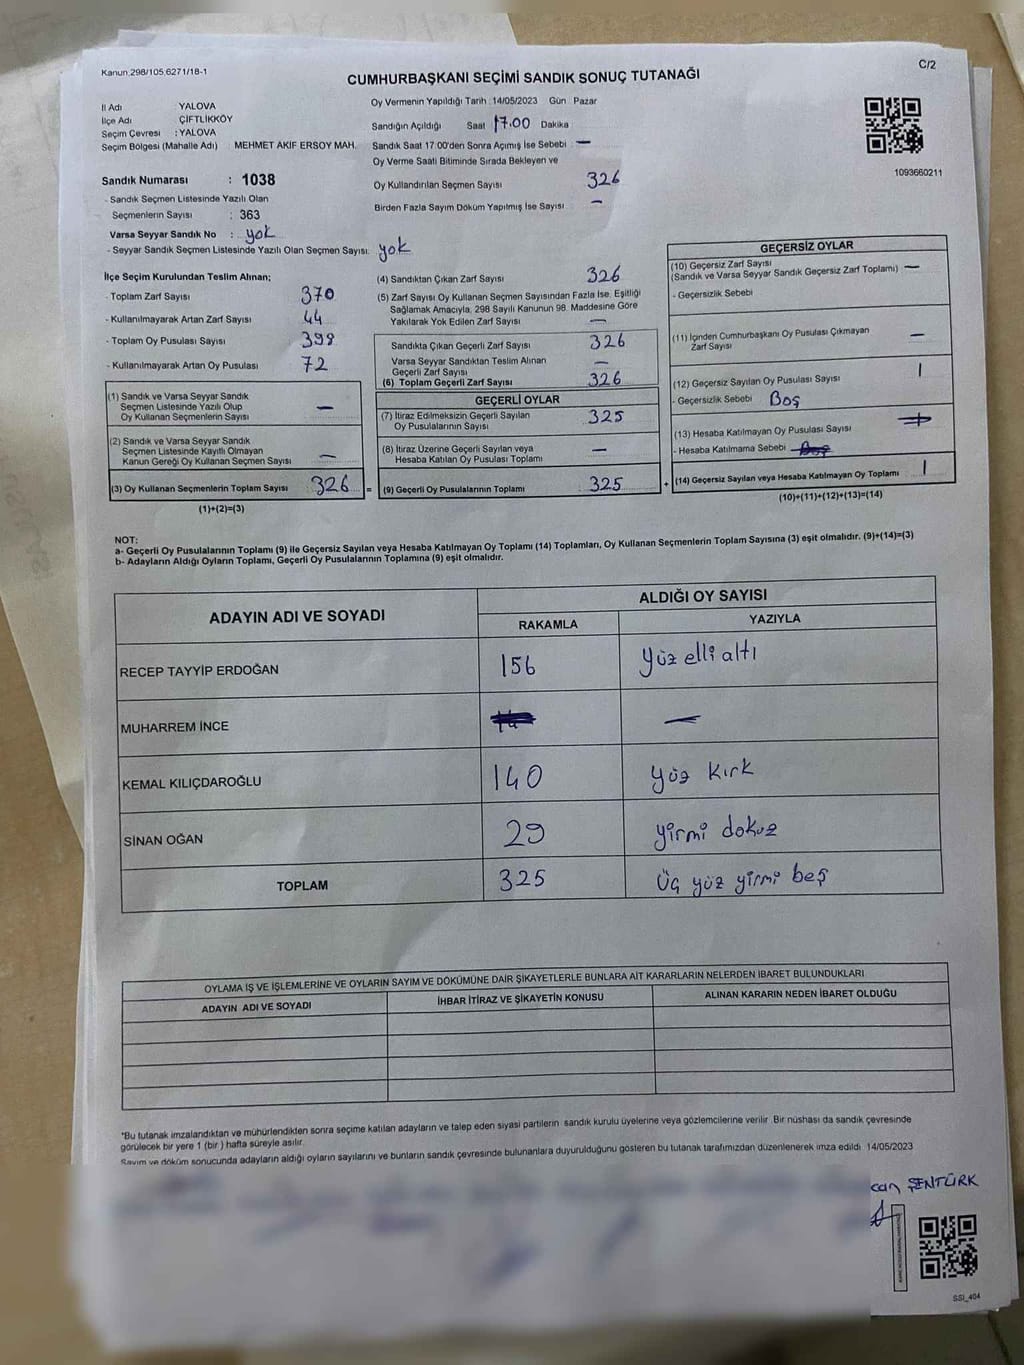 Kanun,298/105,6271/18-1
C/2
CUMHURBAŞKANI SEÇİMİ SANDIK SONUÇ TUTANAĞI
İl Adı YALOVA
İlçe Adı ÇİFTLİKKÖY
Seçim Çevresi : YALOVA
Seçim Bölgesi (Mahalle Adı) MEHMET AKİF ERSOY MAH.
Sandık Numarası : 1038
- Sandık Seçmen Listesinde Yazılı Olan
Seçmenlerin Sayısı : 363
Varsa Seyyar Sandık No : yok
- Seyyar Sandık Seçmen Listesinde Yazılı Olan Seçmen Sayısı: yok
Oy Vermenin Yapıldığı Tarih : 14/05/2023 Gün : Pazar
Sandığın Açıldığı Saat 17.00 Dakika
Sandık Saat 17:00'den Sonra Açımış İse Sebebi : —
Oy Verme Saati Bitiminde Sırada Bekleyen ve
Oy Kullandırılan Seçmen Sayısı 326
Birden Fazla Sayım Döküm Yapılmış İse Sayısı —
1093660211
İlçe Seçim Kurulundan Teslim Alınan;
- Toplam Zarf Sayısı 370
- Kullanılmayarak Artan Zarf Sayısı 44
- Toplam Oy Pusulası Sayısı 398
- Kullanılmayarak Artan Oy Pusulası 72
(1) Sandık ve Varsa Seyyar Sandık
Seçmen Listesinde Yazılı Olup
Oy Kullanan Seçmenlerin Sayısı —
(2) Sandık ve Varsa Seyyar Sandık
Seçmen Listesinde Kayıtlı Olmayan
Kanun Gereği Oy Kullanan Seçmen Sayısı —
(3) Oy Kullanan Seçmenlerin Toplam Sayısı 326 =
(1)+(2)=(3)
(4) Sandıktan Çıkan Zarf Sayısı 326
(5) Zarf Sayısı Oy Kullanan Seçmen Sayısından Fazla İse, Eşitliği
Sağlamak Amacıyla, 298 Sayılı Kanunun 98. Maddesine Göre
Yakılarak Yok Edilen Zarf Sayısı —
Sandıkta Çıkan Geçerli Zarf Sayısı 326
Varsa Seyyar Sandıktan Teslim Alınan
Geçerli Zarf Sayısı —
(6) Toplam Geçerli Zarf Sayısı 326
GEÇERLİ OYLAR
(7) İtiraz Edilmeksizin Geçerli Sayılan
Oy Pusulalarının Sayısı 325
(8) İtiraz Üzerine Geçerli Sayılan veya
Hesaba Katılan Oy Pusulası Toplamı —
(9) Geçerli Oy Pusulalarının Toplamı 325 +
GEÇERSİZ OYLAR
(10) Geçersiz Zarf Sayısı
(Sandık ve Varsa Seyyar Sandık Geçersiz Zarf Toplamı) —
- Geçersizlik Sebebi
(11) İçinden Cumhurbaşkanı Oy Pusulası Çıkmayan
Zarf Sayısı —
(12) Geçersiz Sayılan Oy Pusulası Sayısı 1
- Geçersizlik Sebebi Boş
(13) Hesaba Katılmayan Oy Pusulası Sayısı
- Hesaba Katılmama Sebebi Boş
(14) Geçersiz Sayılan veya Hesaba Katılmayan Oy Toplamı 1
(10)+(11)+(12)+(13)=(14)
NOT:
a- Geçerli Oy Pusulalarının Toplamı (9) ile Geçersiz Sayılan veya Hesaba Katılmayan Oy Toplamı (14) Toplamları, Oy Kullanan Seçmenlerin Toplam Sayısına (3) eşit olmalıdır. (9)+(14)=(3)
b- Adayların Aldığı Oyların Toplamı, Geçerli Oy Pusulalarının Toplamına (9) eşit olmalıdır.
ADAYIN ADI VE SOYADI
ALDIĞI OY SAYISI
RAKAMLA YAZIYLA
RECEP TAYYİP ERDOĞAN 156 yüz elli altı
MUHARREM İNCE —
KEMAL KILIÇDAROĞLU 140 yüz kırk
SİNAN OĞAN 29 yirmi dokuz
TOPLAM 325 üç yüz yirmi beş
OYLAMA İŞ VE İŞLEMLERİNE VE OYLARIN SAYIM VE DÖKÜMÜNE DAİR ŞİKAYETLERLE BUNLARA AİT KARARLARIN NELERDEN İBARET BULUNDUKLARI
ADAYIN ADI VE SOYADI İHBAR İTİRAZ VE ŞİKAYETİN KONUSU ALINAN KARARIN NEDEN İBARET OLDUĞU
*Bu tutanak imzalandıktan ve mühürlendikten sonra seçime katılan adayların ve talep eden siyasi partilerin sandık kurulu üyelerine veya gözlemcilerine verilir. Bir nüshası da sandık çevresinde
görülecek bir yere 1 (bir ) hafta süreyle asılır.
Sayım ve döküm sonucunda adayların aldığı oyların sayılarını ve bunların sandık çevresinde bulunanlara duyurulduğunu gösteren bu tutanak tarafımızdan düzenlenerek imza edildi. 14/05/2023
can ŞENTÜRK
SSI_404